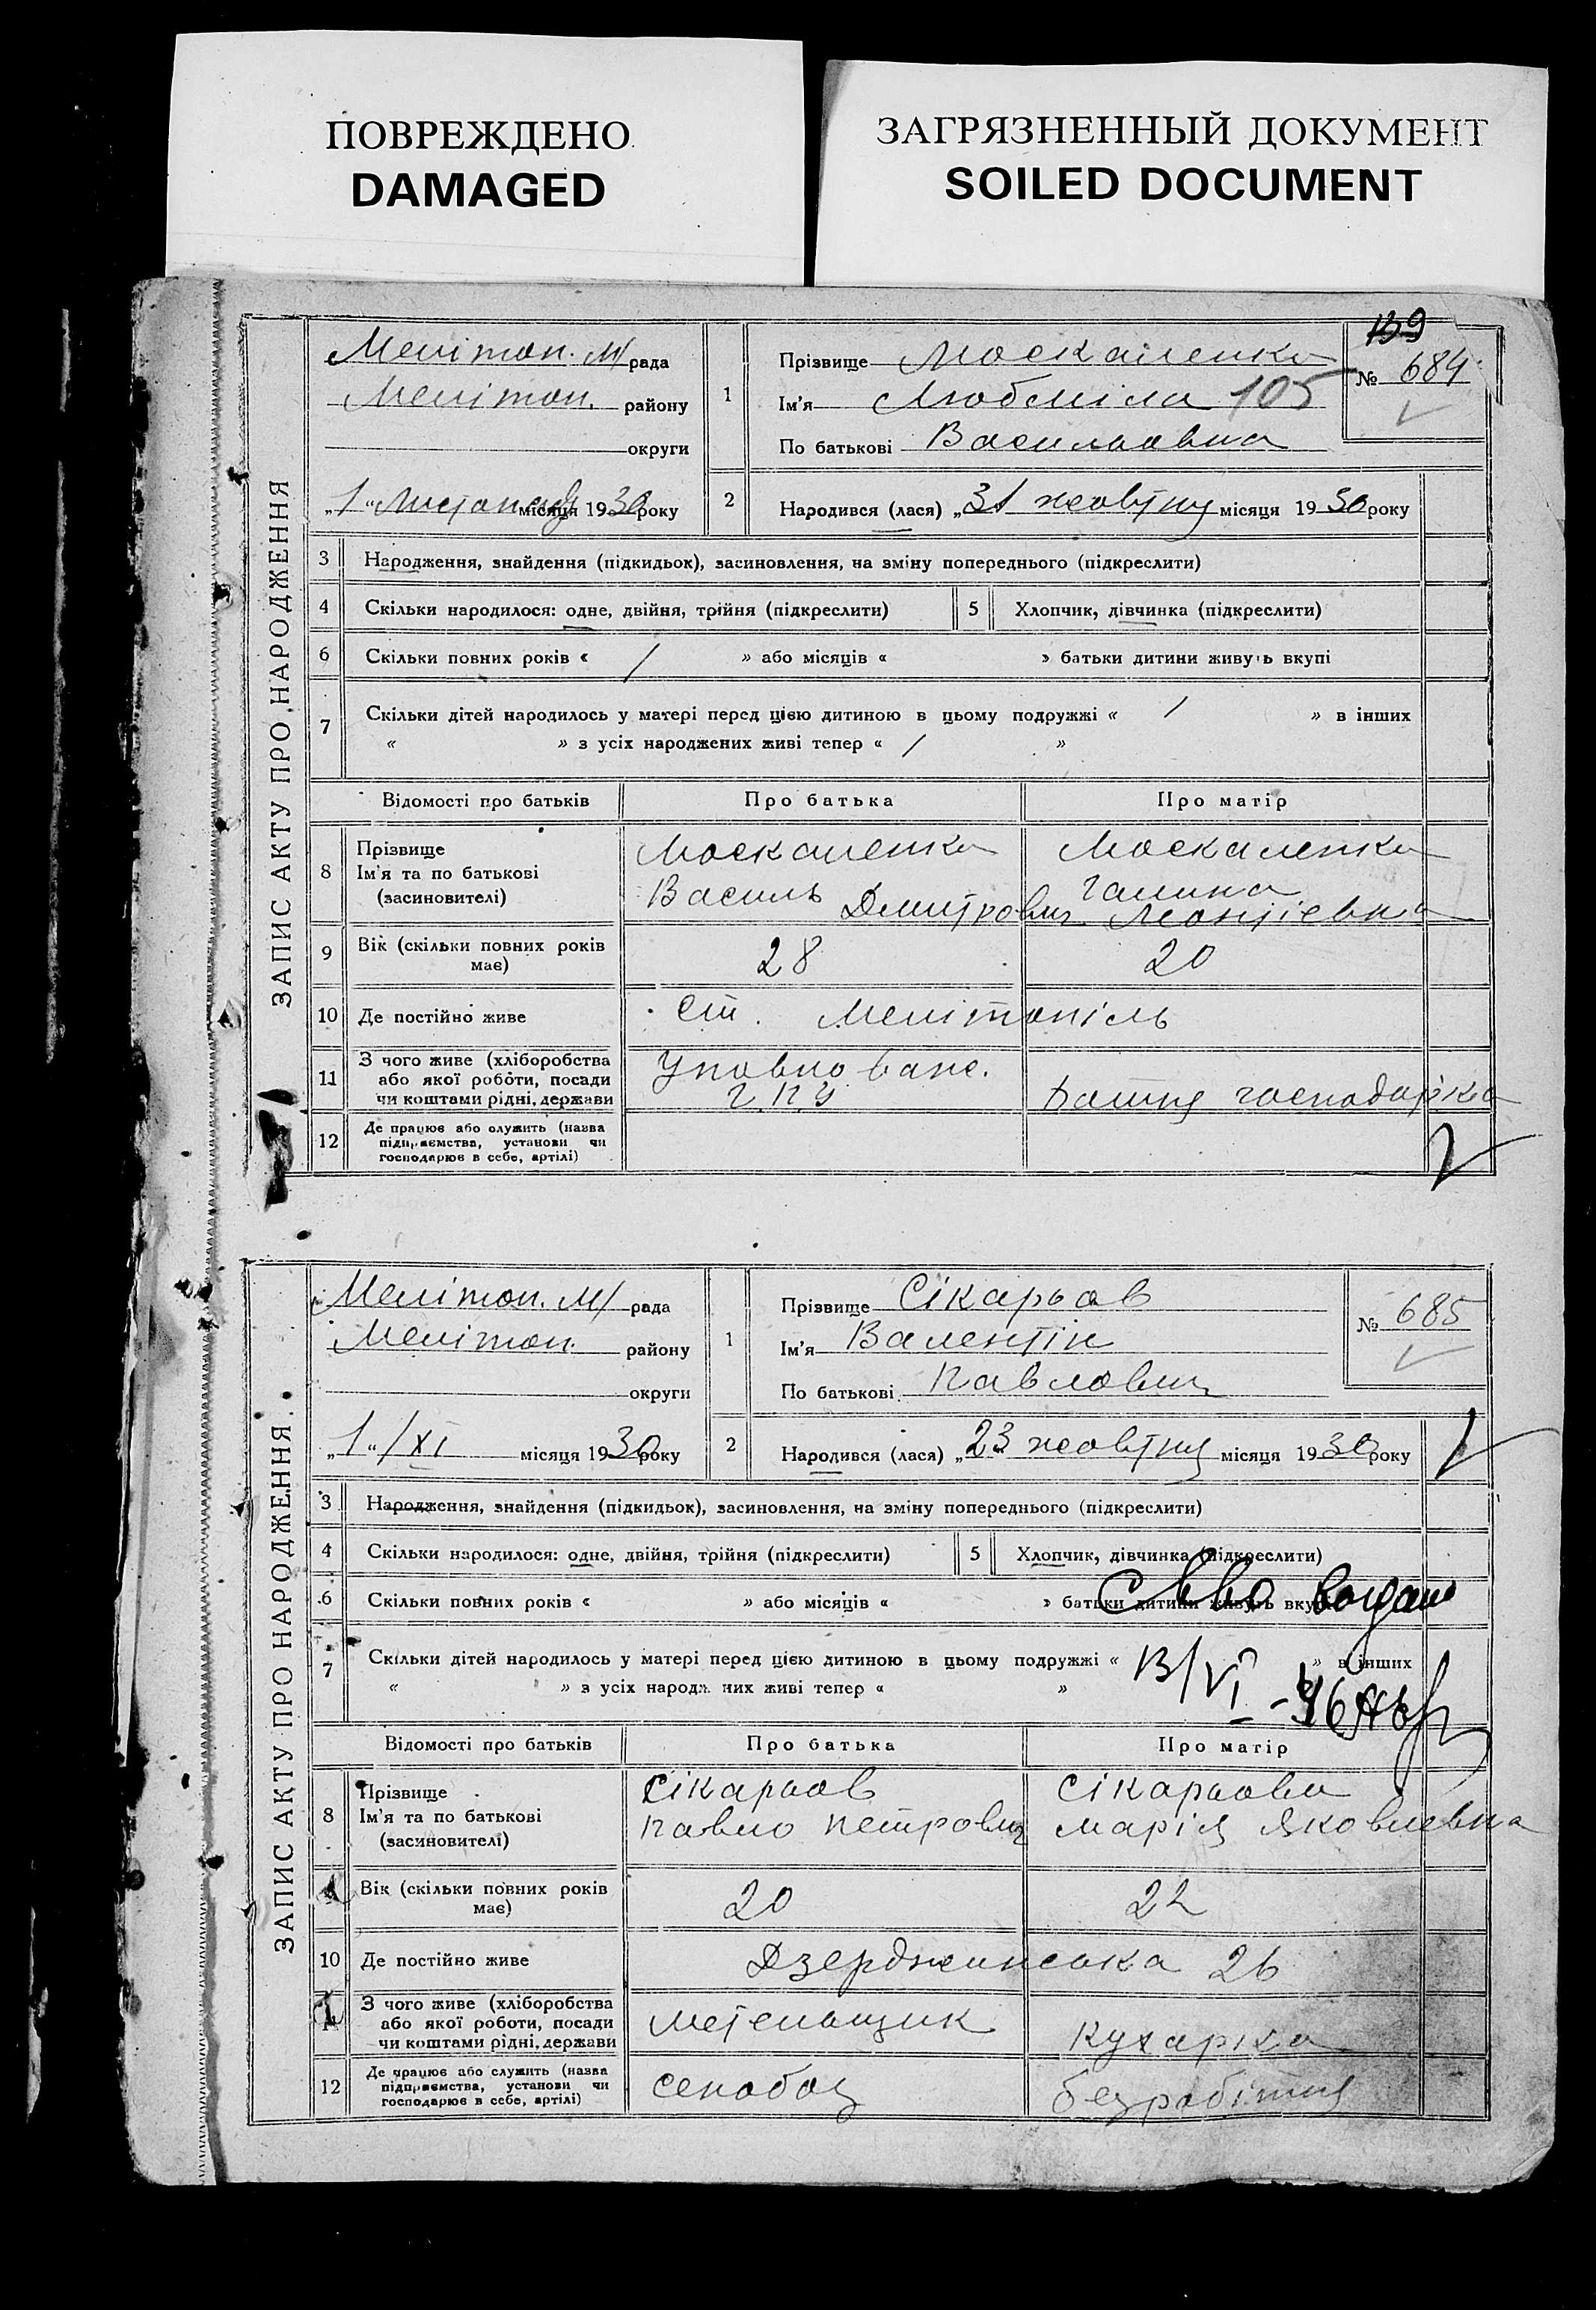 ПОВРЕЖДЕНО
DAMAGED
ЗАГРЯЗНЕННЫЙ ДОКУМЕНТ
SOILED DOCUMENT
139
ЗАПИС АКТУ ПРО НАРОДЖЕННЯ
Мелітоп. М/ рада
Мелітоп. району
округи
„1“ Листопада місяця 1930 року
1
Прізвище Москаленко
Ім'я Любміла 105
По батькові Васильовна
№ 684
2
Народився (лася) „31 жовтня місяця 1930 року
3 Народження, знайдення (підкидьок), засиновлення, на зміну попереднього (підкреслити)
4 Скільки народилося: одне, двійня, трійня (підкреслити) 5 Хлопчик, дівчинка (підкреслити)
6 Скільки повних років « / » або місяців « » батьки дитини живуть вкупі
7 Скільки дітей народилось у матері перед цією дитиною в цьому подружжі « / » в інших
« » з усіх народжених живі тепер « / »
Відомості про батьків Про батька Про матір
8 Прізвище
Ім'я та по батькові
(засиновителі)
Москаленко
Василь Дмитрович
Москаленко
Галина
Леонтіевна
9 Вік (скільки повних років має) 28 20
10 Де постійно живе ст. Мелітопіль
11 З чого живе (хліборобства
або якої роботи, посади
чи коштами рідні, держави
Уповноване.
Г.П.У
Домашня господарка
12 Де працює або служить (назва
підприємства, установи чи
господарює в себе, артілі)
ЗАПИС АКТУ ПРО НАРОДЖЕННЯ
Мелітоп. М/ рада
Мелітоп. району
округи
„1“/XI місяця 1930 року
1
Прізвище Сікарьов
Ім'я Валентін
По батькові Павлович
№ 685
2
Народився (лася) „23 жовтня місяця 1930 року
3 Народження, знайдення (підкидьок), засиновлення, на зміну попереднього (підкреслити)
4 Скільки народилося: одне, двійня, трійня (підкреслити) 5 Хлопчик, дівчинка (підкреслити)
6 Скільки повних років « » або місяців « » батьки дитини живуть вкупі
7 Скільки дітей народилось у матері перед цією дитиною в цьому подружжі « » в інших
« » з усіх народжених живі тепер « »
13/VI
Відомості про батьків Про батька Про матір
8 Прізвище
Ім'я та по батькові
(засиновителі)
Сікарьов
Павло Петрович
Сікарьова
Марія Яковлевна
9 Вік (скільки повних років має) 20 22
10 Де постійно живе Дзерджинська 26
11 З чого живе (хліборобства
або якої роботи, посади
чи коштами рідні, держави
метельщик
Кухарка
12 Де працює або служить (назва
підприємства, установи чи
господарює в себе, артілі)
безробітня